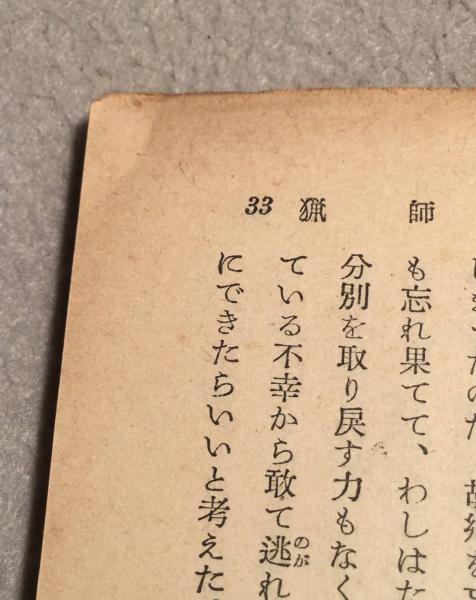 33 猟師
も忘れ果てて、わしはた
分別を取り戻す力もなく
ている不幸から敢て逃れ
のが
にできたらいいと考えた